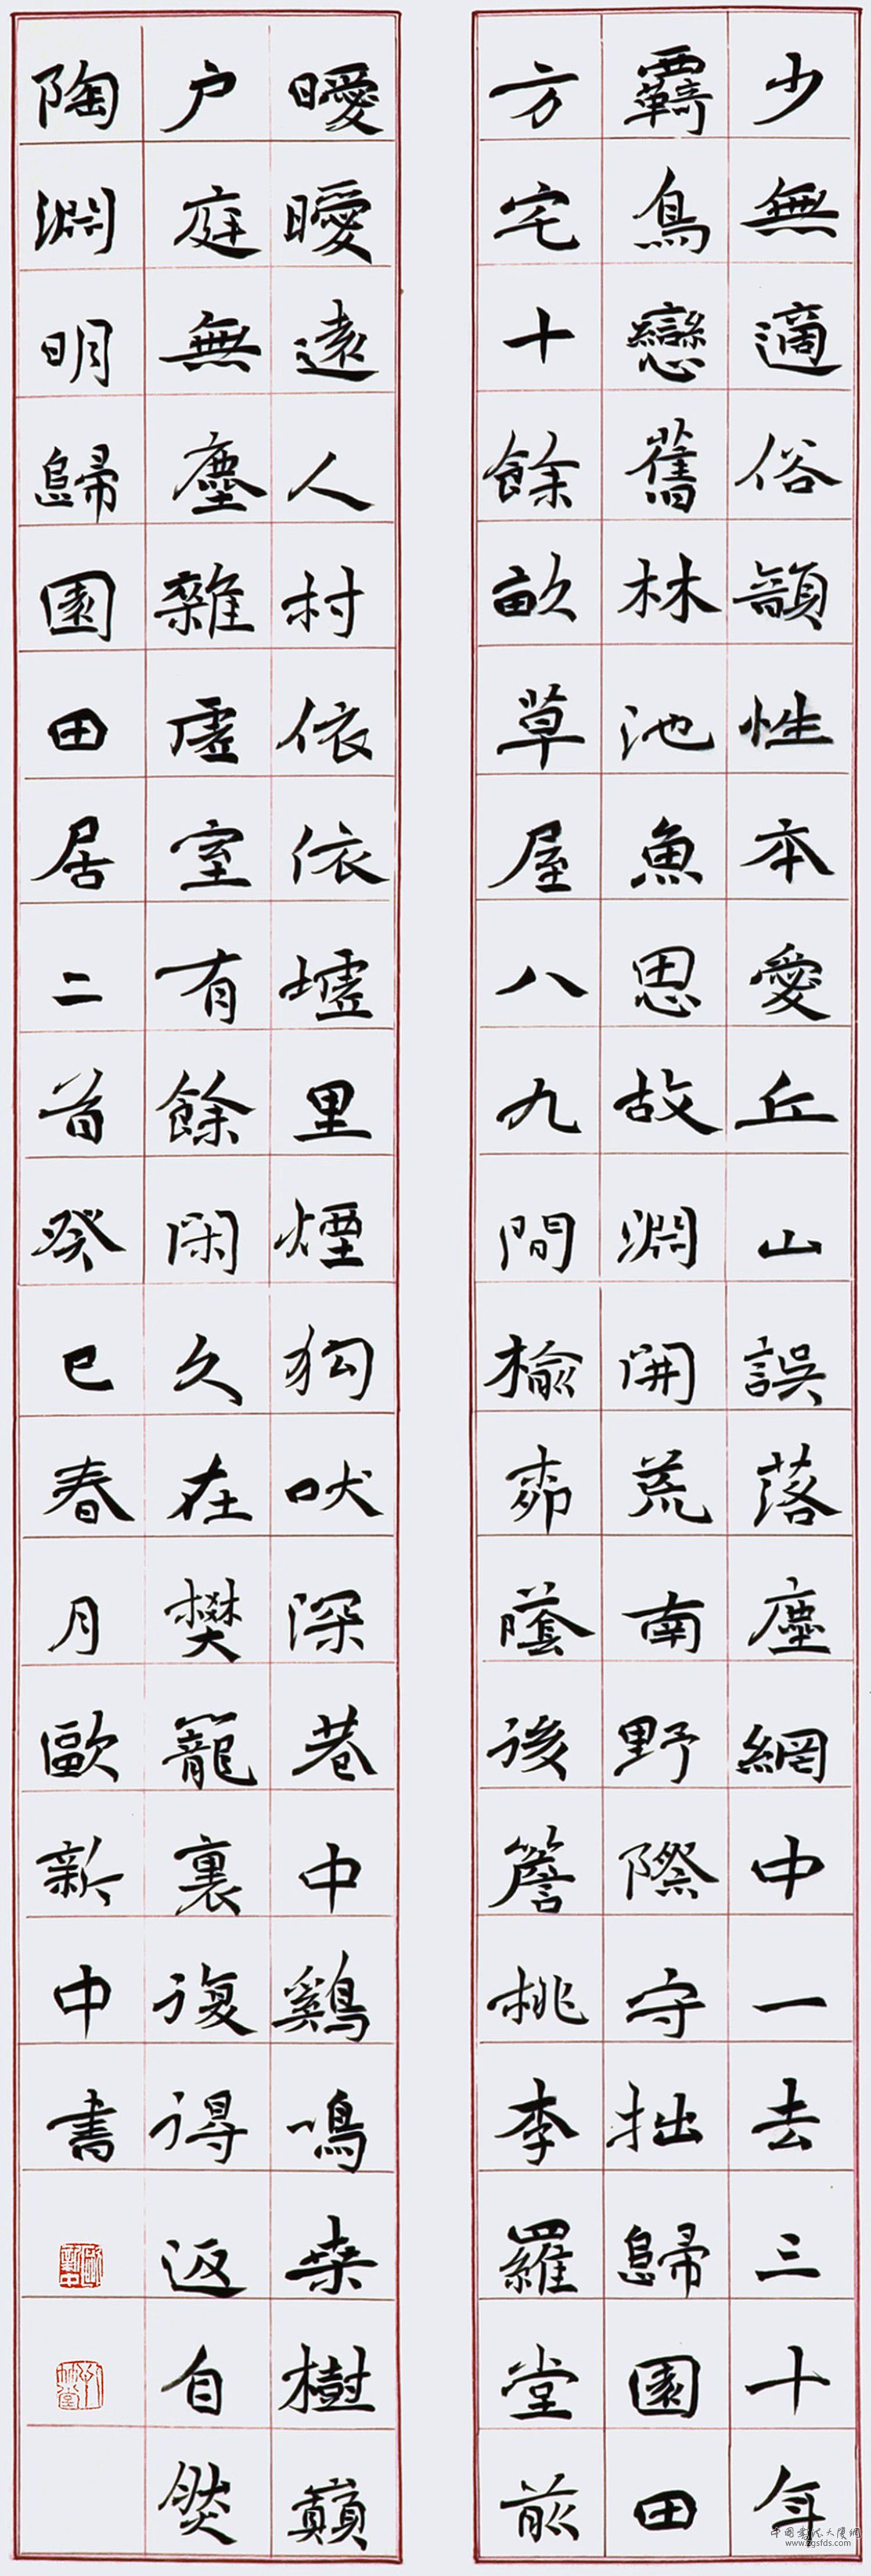 少無適俗韻性本愛丘山誤落塵網中一去三十年
覉鳥戀舊林池魚思故淵開荒南野際守拙歸園田
方宅十餘畝草屋八九間榆柳蔭後簷桃李羅堂前
曖曖遠人村依依墟里煙狗吠深巷中鷄鳴桑樹巔
户庭無塵雜虛室有餘閑久在樊籠裏復得返自然
陶淵明歸園田居二首癸巳春月歐新中書
歐新中
中国书法大厦网
www.zgsfds.com